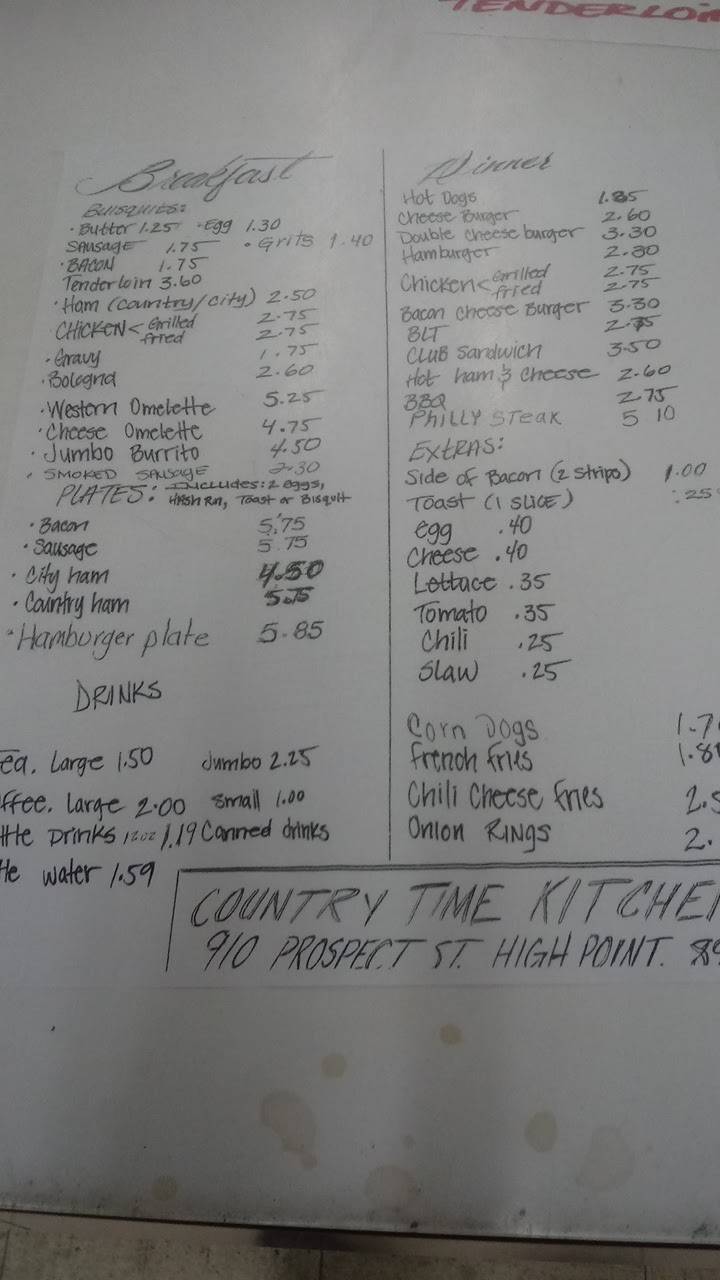 TENDERLOIN
Breakfast
BUISQUITS:
• Butter 1.25 • Egg 1.30
SAUSAGE 1.75 • Grits 1.40
• BACON 1.75
Tenderloin 3.60
• Ham (country/city) 2.50
CHICKEN < Grilled 2.75
fried 2.75
• Gravy 1.75
• Bologna 2.60
• Western Omelette 5.25
• Cheese Omelette 4.75
• Jumbo Burrito 4.50
• SMOKED SAUSAGE 2.30
PLATES: Includes: 2 eggs,
HASH Rn, Toast or Bisquit
• Bacon 5.75
• Sausage 5.75
• City ham 4.50
• Country ham 5.75
• Hamburger plate 5.85
DRINKS
ea. Large 1.50 Jumbo 2.25
ffee. Large 2.00 Small 1.00
ttle Drinks 12oz 1.19 Canned drinks
le water 1.59
Dinner
Hot Dogs 1.85
Cheese Burger 2.60
Double cheese burger 3.30
Hamburger 2.30
Chicken < Grilled 2.75
fried 2.75
Bacon Cheese Burger 3.30
BLT 2.75
CLUB Sandwich 3.50
Hot ham & Cheese 2.60
BBQ 2.75
PHILLY STeak 5 10
EXTRAS:
Side of Bacon (2 Strips) 1.00
Toast (1 SLICE) .25
egg .40
Cheese .40
Lettuce .35
Tomato .35
Chili .25
Slaw .25
Corn Dogs 1.7
French fries 1.8
Chili Cheese fries 2.5
Onion RINGS 2.
COUNTRY TIME KITCHEN
910 PROSPECT ST. HIGH POINT.